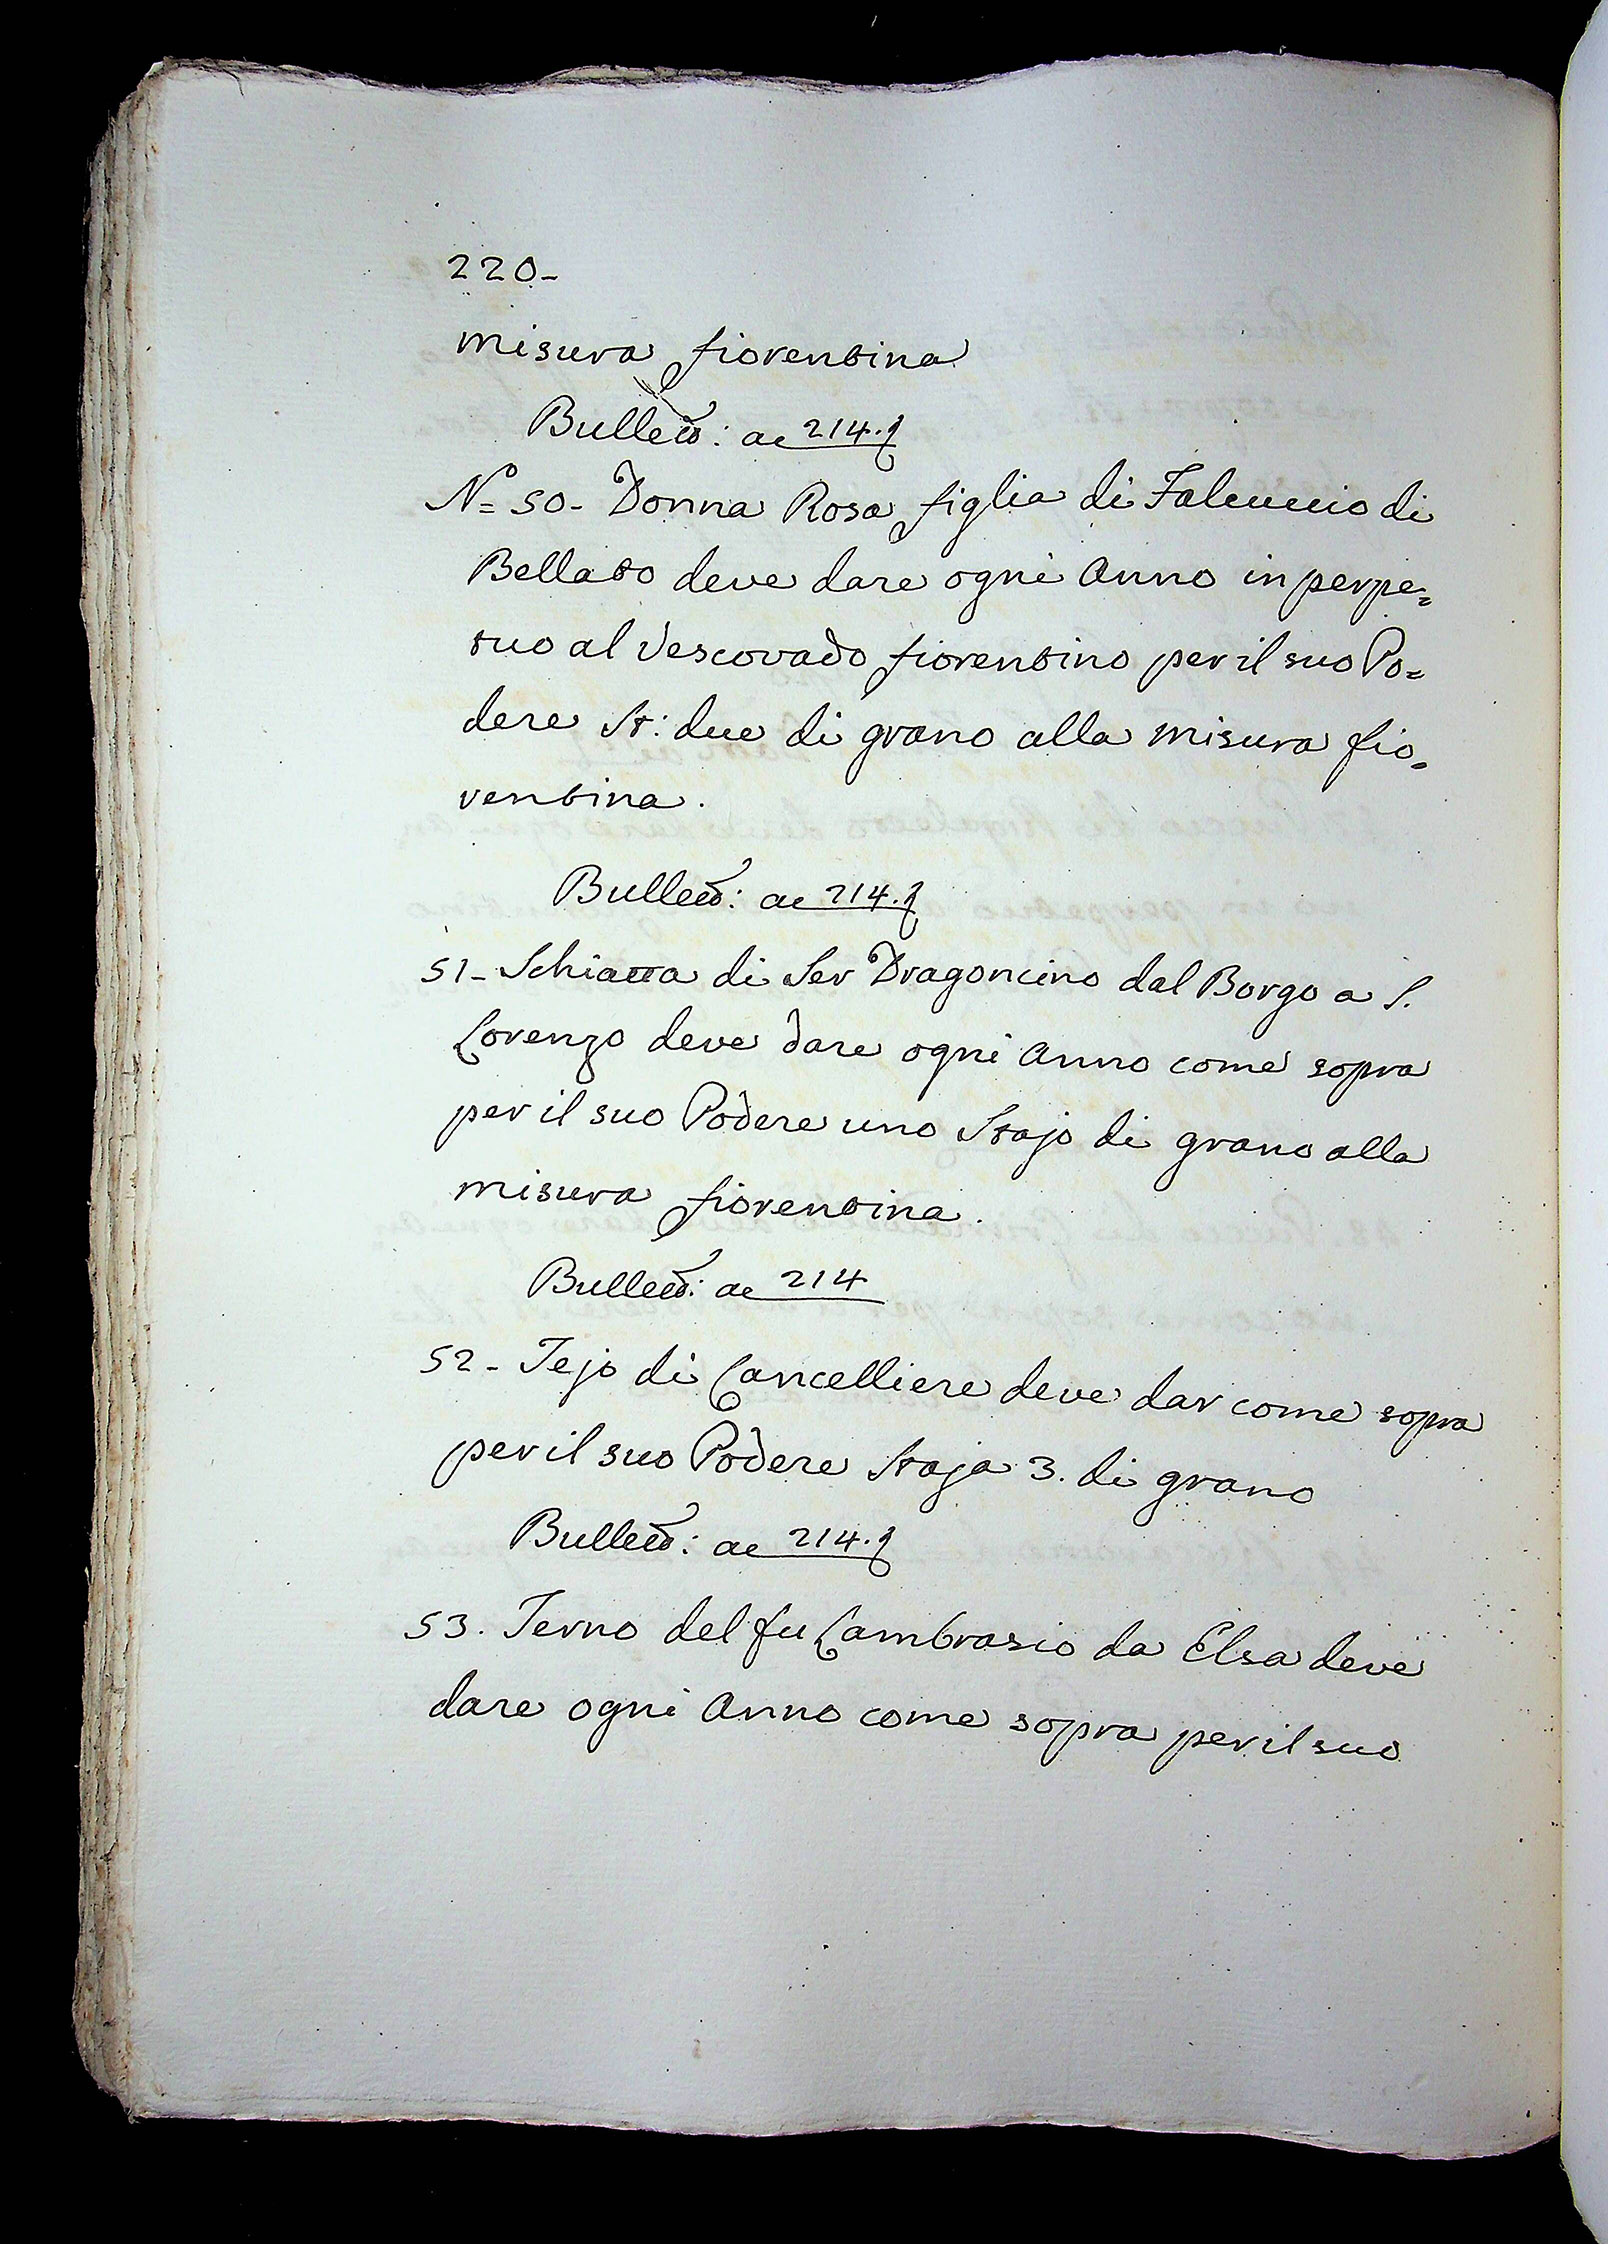 220-
misura fiorentina
Bullett: ac 214.
N= 50- Donna Rosa figlia di Falcuccio di
Bellato deve dare ogni Anno in perpe=
tuo al Vescovado fiorentino per il suo Po=
dere St: due di grano alla misura fio=
rentina.
Bullett: ac 214.
51- Schiatta di Ser Dragoncino dal Borgo a S.
Lorenzo deve dare ogni Anno come sopra
per il suo Podere uno Stajo di grano alla
misura fiorentina.
Bullett: ac 214
52- Tejo di Cancelliere deve dar come sopra
per il suo Podere Staja 3. di grano
Bullett: ac 214.
53. Terno del fu Cambrasio da Elsa deve
dare ogni Anno come sopra per il suo